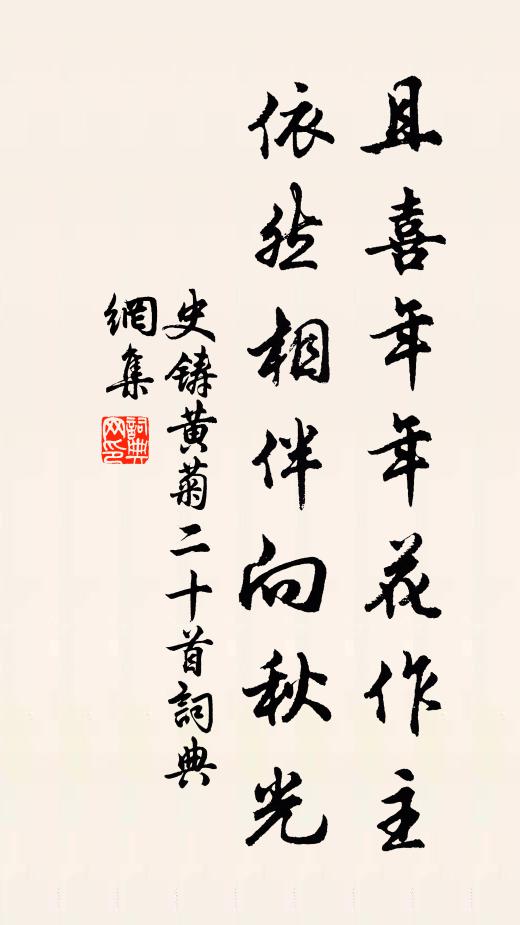 且喜年年花作主
依然相伴向秋光
史鑄黄菊二十首詞典
網集
詞典
网印